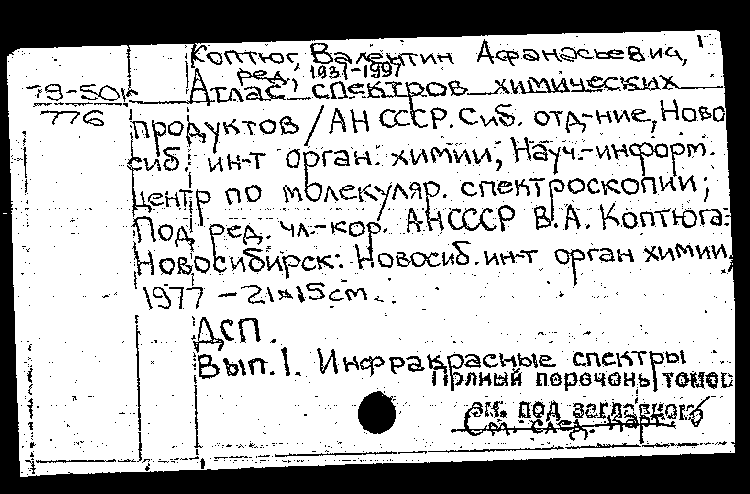 Коптюг, Валентин Афанасьевич,
ред., 1931-1997
Атлас спектров химических
79-50
776
продуктов / АН СССР. Сиб. отд-ние, Ново
сиб. ин-т орган. химии, Науч.-информ.
центр по молекуляр. спектроскопии;
Под ред. чл.-кор. АН СССР В.А. Коптюга.
Новосибирск: Новосиб. ин-т орган химии,
1977 – 21×15см.
ДСП.
Вып. 1. Инфракрасные спектры
Полный перечень томов
см. под заглавною
См. след. карт.